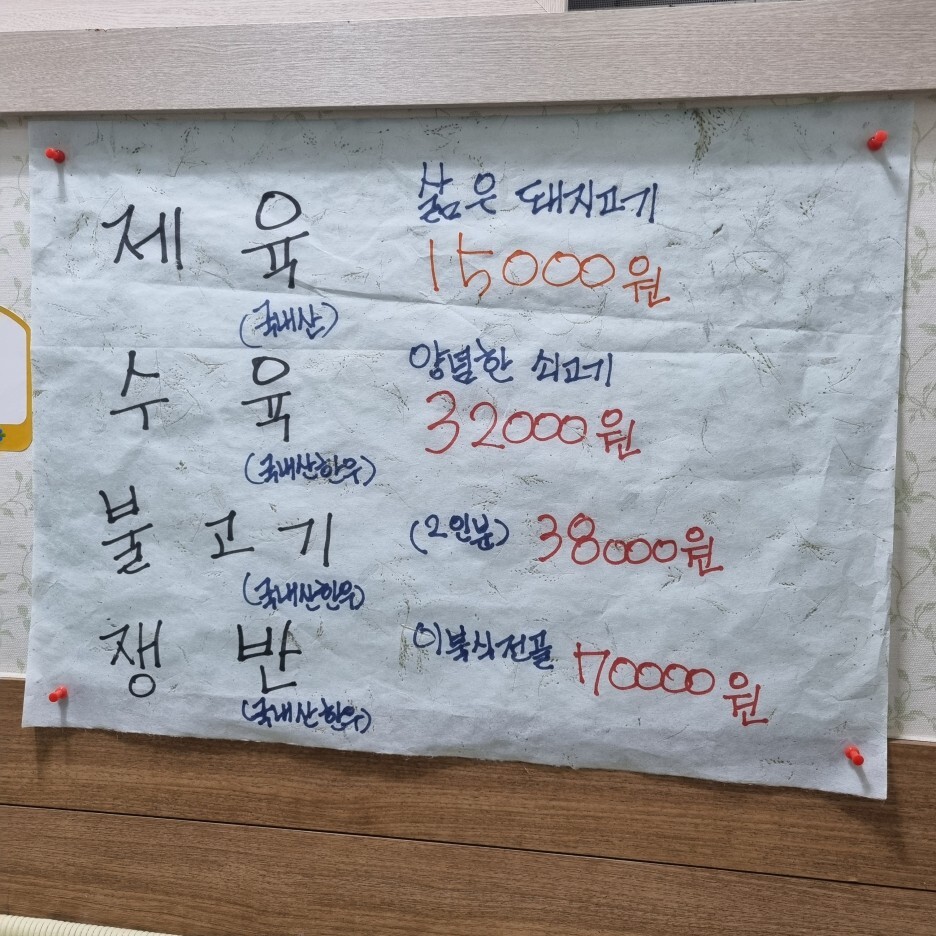 제육 삶은 돼지고기
15000원
(국내산)
수육 양념한 쇠고기
32000원
(국내산한우)
불고기 (2인분) 38000원
(국내산한우)
쟁반 이북식전골 70000원
(국내산한우)